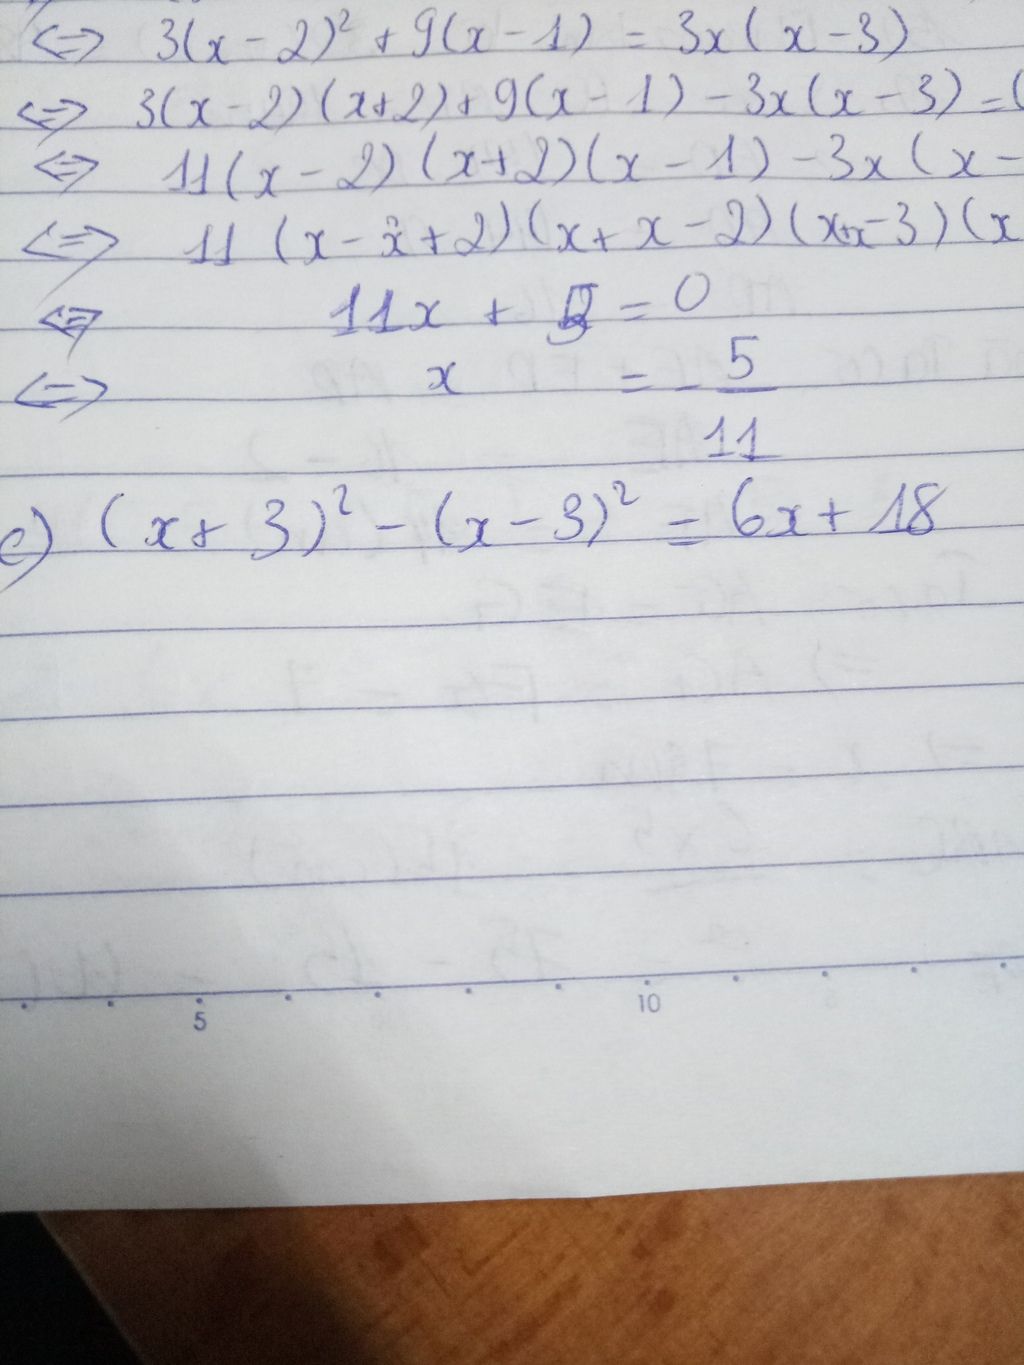 ⇔ 3(x-2)² + 9(x-1) = 3x(x-3)
⇔ 3(x-2)(x+2)+9(x-1)-3x(x-3)=
⇔ 11(x-2)(x+2)(x-1)-3x(x-
⇔ 11(x-x+2)(x+x-2)(x+x-3)(x
⇔ 11x + 5 = 0
⇔ x = -5/11
c) (x+3)² - (x-3)² = 6x + 18
5 10